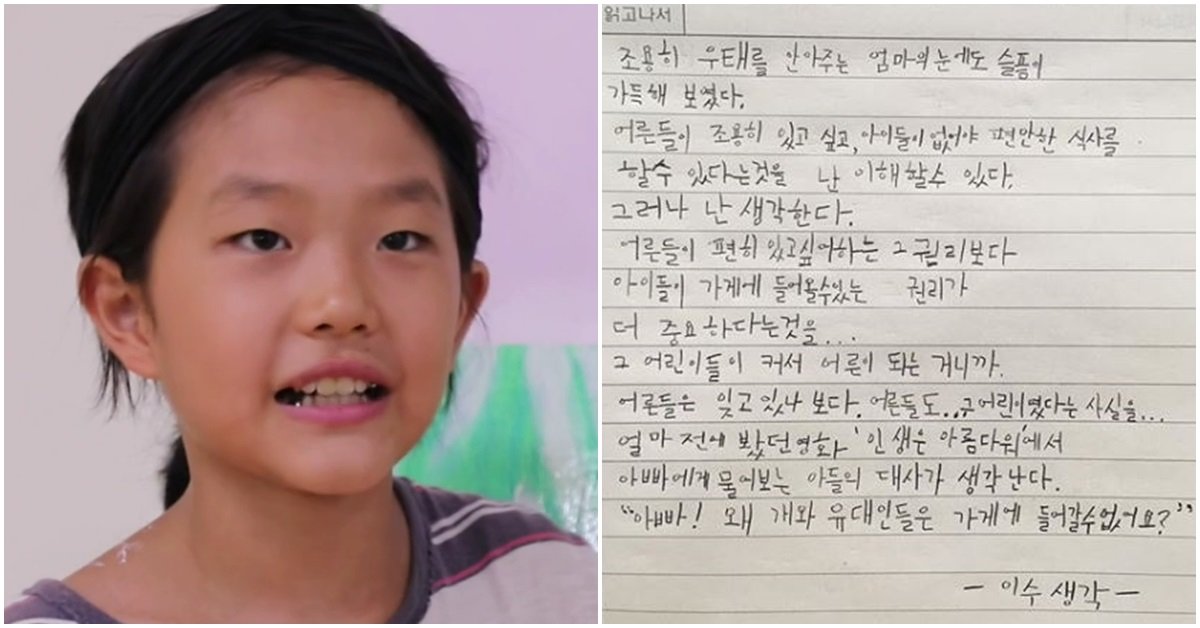 읽고나서
조용히 우태를 안아주는 엄마의 눈에도 슬픔이
가득해 보였다.
어른들이 조용히 있고 싶고, 아이들이 없어야 편안한 식사를
할수 있다는것을 난 이해할수 있다.
그러나 난 생각한다.
어른들이 편히 있고싶어하는 그 권리보다
아이들이 가게에 들어올수있는 권리가
더 중요하다는것을...
그 어린이들이 커서 어른이 돠는 거니까.
어른들은 잊고 있나 보다. 어른들도.. 그 어린이였다는 사실을...
얼마 전에 봤던 영화 '인생은 아름다워'에서
아빠에게 물어보는 아들의 대사가 생각난다.
"아빠! 왜 개와 유대인들은 가게에 들어갈수없어요?"
- 이수 생각 -